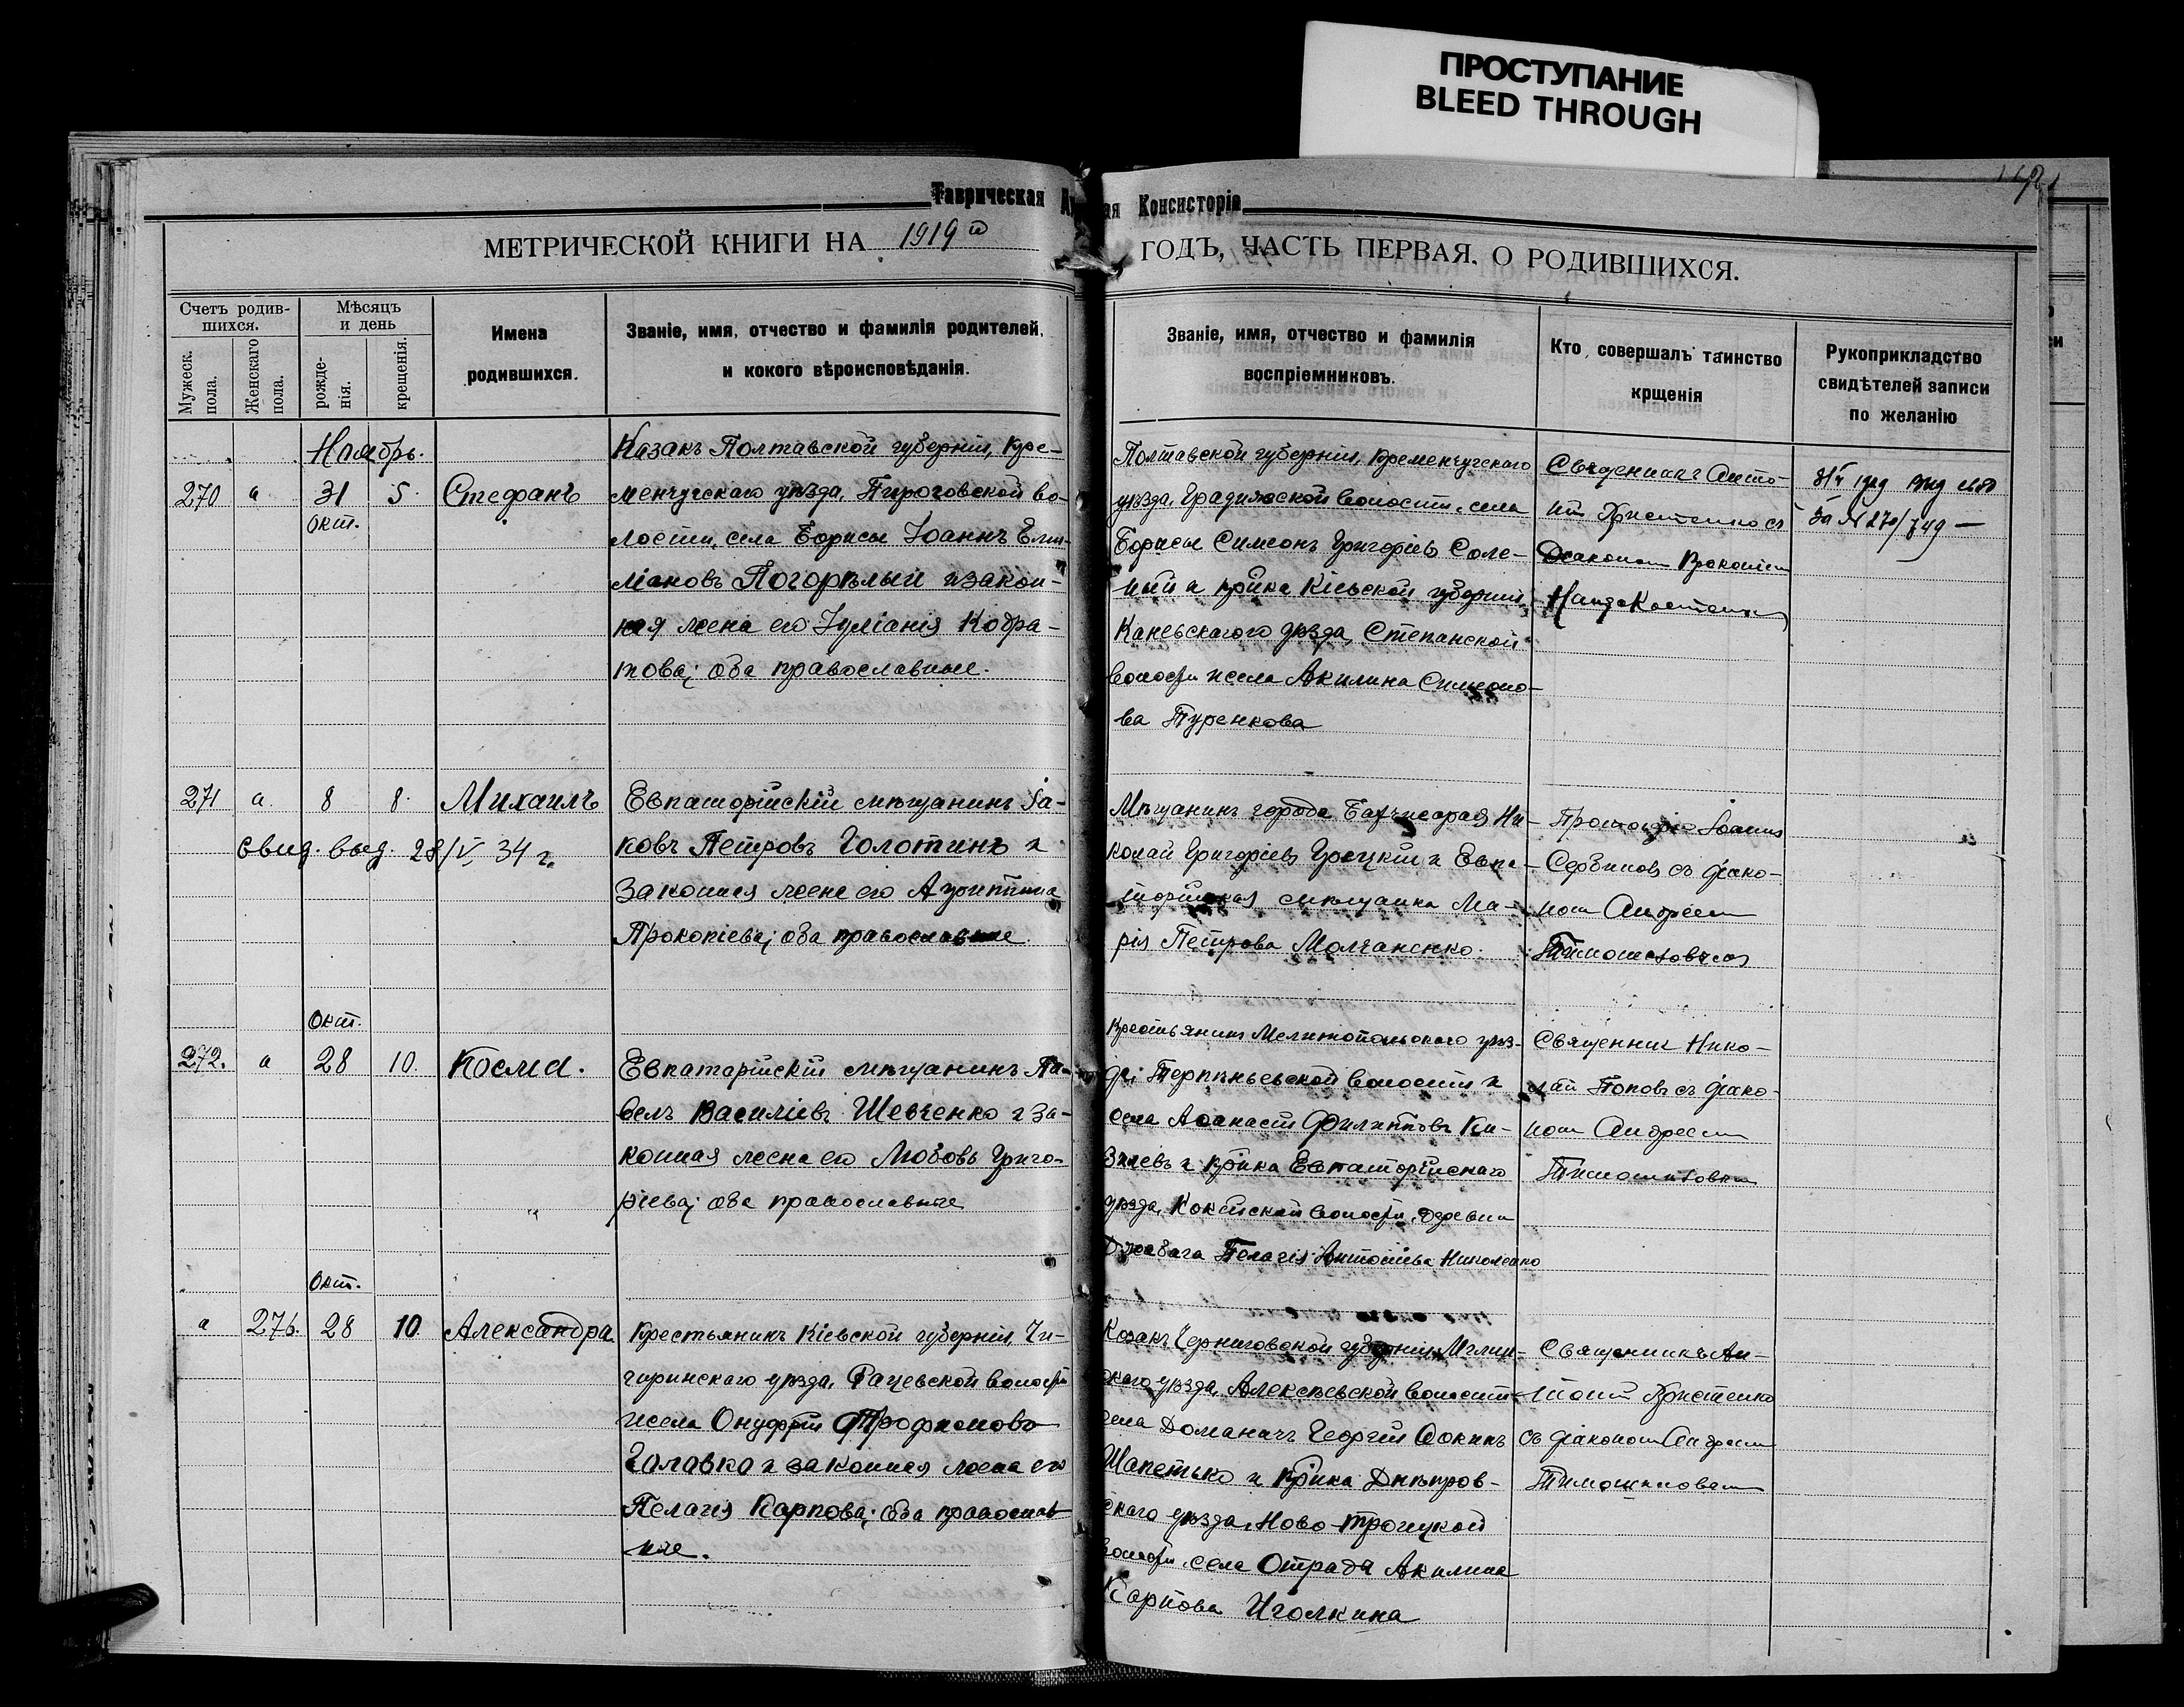 ПРОСТУПАНИЕ
BLEED THROUGH
Таврическая
ая Консисторія
МЕТРИЧЕСКОЙ КНИГИ НА 1919й
ГОДЪ, ЧАСТЬ ПЕРВАЯ, О РОДИВШИХСЯ.
Счетъ родив-
шихся.
Мужеск.
пола.
Женскаго
пола.
Мѣсяцъ
и день
рожде-
нія.
крещенія.
Имена
родившихся.
Званіе, имя, отчество и фамилія родителей,
и кокого вѣроисповѣданія.
Званіе, имя, отчество и фамилія
воспріемниковъ.
Кто совершалъ таинство
крщенія
Рукоприкладство
свидѣтелей записи
по желанію
Ноябрь.
270 а 31 5. Стефанъ
Окт.
Казакъ Полтавской губерніи, Кре-
менчугскаго уѣзда, Пироговской во-
лости, села Борисы Іоаннъ Еми-
ліановъ Погорѣлый и закон-
ная жена его Іуліанія Кодра-
това; оба православные.
Полтавской губерніи, Кременчугскаго
уѣзда, Градижской волости, села
Борисы Симеонъ Григоріевъ Соле-
ный и кр-ка Кіевской губерніи,
Каневскагого уѣзда, Степанской
волости и села Акилина Симеоно-
ва Туренкова
Священникъ Анто-
ній Христенко съ
Діакономъ Прокопіем
за № 270/749 —
271 а. 8 8. Михаилъ
свид. выд. 28/V, 34 г.
Евпаторійскій мѣщанинъ Іа-
ковъ Петровъ Голотинъ и
законная жена его Агриппина
Прокопіева; оба православные.
Мѣщанинъ города Бахчисарая Ни-
колай Григоріевъ Грецкій и Евпа-
торійская мѣщанка Ма-
рія Петрова Молчаненко.
Протоіерей Іоаннъ
Сербиновъ съ діако-
номъ Андреем
Тимошеловым
Окт.
272. а 28 10. Косма.
Евпаторійскій мѣщанинъ Па-
велъ Василіевъ Шевченко и за-
конная жена его Любовь Григо-
ріева; оба православные
Крестьянинъ Мелитопольскаго уѣз-
да, Терпѣньевской волости и
села Аѳанасій Филипповъ Ки-
зилевъ и кр-ка Евпаторійскаго
уѣзда, Кокейской волости, деревни
Джабага Пелагія Антоніева Николенко
Священник Нико-
лай Поповъ съ діако-
ном Андреем
Тимошеловым
Окт.
а 276. 28 10 Александра
Крестьянинъ Кіевской губерніи, Чи-
гиринскаго уѣзда, Рацевской волости
и села Онуфрій Трофимовъ
Головко и законная жена его
Пелагія Карпова; оба православ-
ные.
Козакъ Черниговской губерніи, Мглин-
скаго уѣзда, Алексѣевской волости
села Доманичъ Георгій Ѳокинъ
Шапетько и кр-ка Днѣпров-
скаго уѣзда, Ново-троицкой
волости, села Отрада Акилина
Карпова Иголкина
Священникъ Ан-
тоній Христенко
съ діаконом Андреем
Тимошеловым